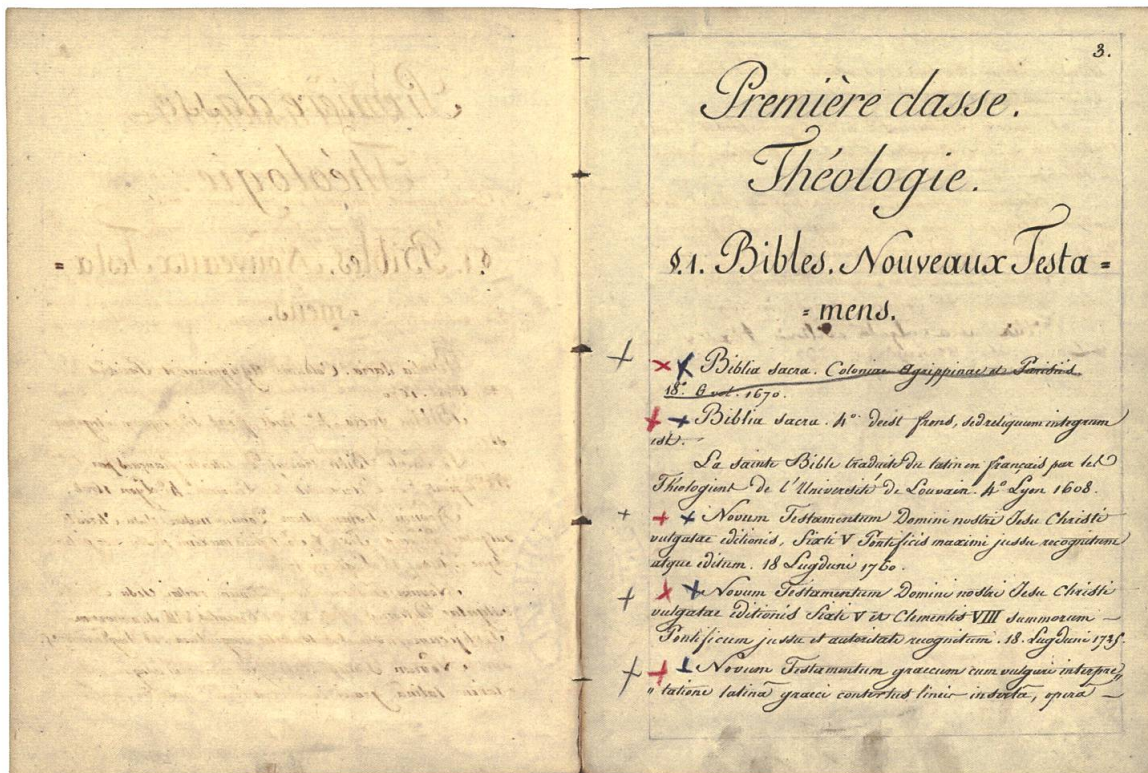 3.
Première classe.
Théologie.
§.1. Bibles. Nouveaux Testa=
=mens.
Biblia sacra. Coloniae Agrippinae et Parisiis
18.° 6 vol. 1670.
Biblia sacra. 4° deest frons, sed reliquum integrum
est.
La sainte Bible traduite du latin en français par les
Théologiens de l'Université de Louvain. 4° Lyon 1608.
Novum Testamentum Domini nostri Jesu Christi
vulgatae editionis, Sixti V Pontificis maximi jussu recognitum
atque editum. 18 Lugduni 1760.
Novum Testamentum Domini nostri Jesu Christi
vulgatae editionis Sixti V et Clementis VIII summorum —
Pontificum jussu et autoritate recognitum. 18. Lugduni 1735.
Novum Testamentum graecum cum vulgari interpre„
„tatione latinâ graeci contextus lineis insertâ, operâ —